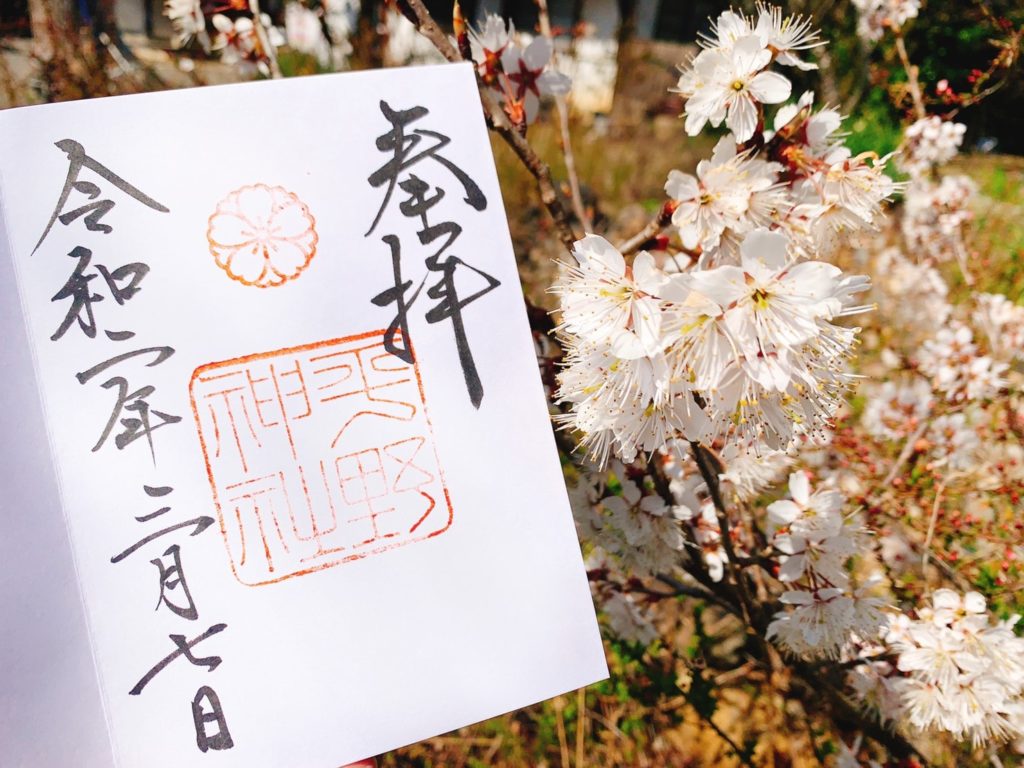 奉拝
平野
神社
令和二年三月七日